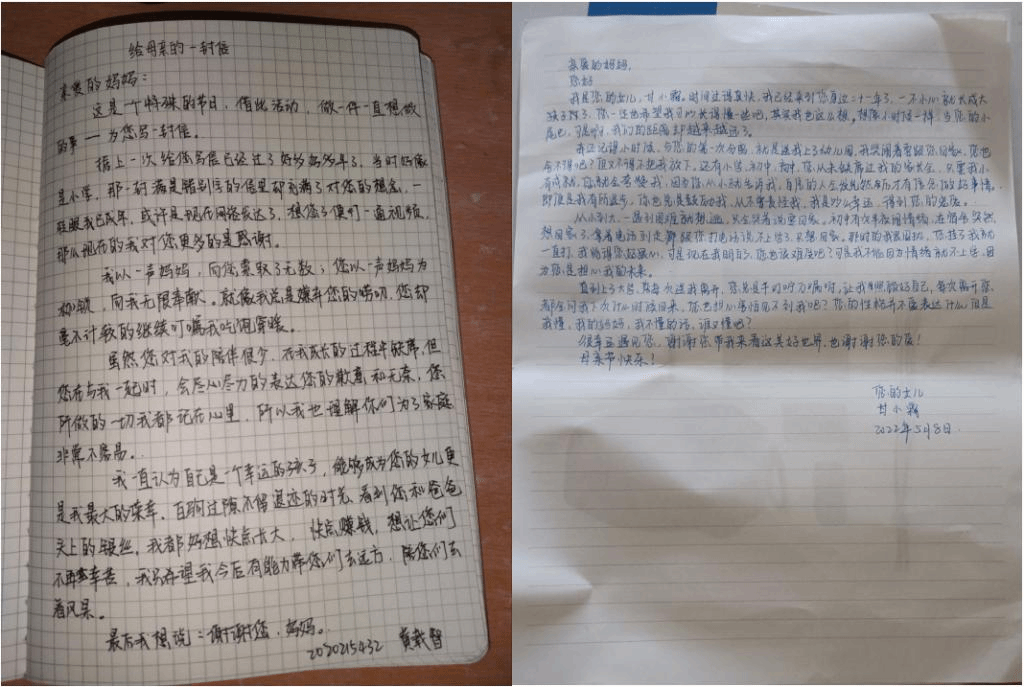 给母亲的一封信
亲爱的妈妈：
这是一个特殊的节日，借此活动，做一件一直想做
的事——为您写一封信。
据上一次给您写信已经过了好多好多年了，当时好像
是小学，那一封满是错别字的信里却充满了对您的想念，一
眨眼我已成年，或许是现在网络发达了，想您了便打一通视频，
那么现在的我对您更多的是感谢。
我以一声妈妈，向您索取了无数；您以一声妈妈为
枷锁，向我无限奉献。就像我总是嫌弃您的唠叨，您却
毫不计较的继续叮嘱我吃饱穿暖。
虽然您对我的陪伴很少，在我成长的过程中缺席，但
您在与我一起时，会尽心尽力的表达您的歉意和无奈，您
所做的一切我都记在心里，所以我也理解你们为了家庭
非常不容易。
我一直认为自己是一个幸运的孩子，能够成为您的女儿更
是我最大的荣幸，白驹过隙不留退还的时光，看到您和爸爸
头上的银丝，我都好想快点长大，快点赚钱，想让您们
不再辛苦，我只希望我今后有能力带您们去远方，陪您们去
看风景。
最后我想说：谢谢您，妈妈。
2020215432 黄载智
亲爱的妈妈，
您好
我是您的女儿，甘小霜。时间过得真快，我已经来到您身边二十一年了，一不小心就长成大
孩子了，您一定也希望我可以长得慢一些吧，其实我也这么想。想像小时候一样，当您的小
尾巴，可是啊，我们的距离却越来越远了。
我还记得小时候，与您的第一次分离，就是送我上幼儿园，我哭闹着要跟您回家，您也
舍不得吧？但又不得不把我放下。还有小学，初中，高中，您从未缺席过我的家长会，只要我小
有成就，您就会夸赞我，因为您从小就告诉我，自信的人会发光，然后才有信念做好事情。
即便是我有所退步，您也总是鼓励我，从不责怪我，我是如此幸运，得到您的宽爱。
从小到大，一遇到困难就想逃，只会哭着说要回家。初中有次半夜闹情绪，在宿舍突然
想回家了，拿着电话到走廊跟您打电话说不上学了，只想回家。那时的我很固执，您挂了我就
一直打，我明明您起疑心，可是现在我明白了，您也该难受吧？可是我不能因为情绪就不上学，因
为您是担心我的未来。
直到上了大学，每次送我离开，您总是千叮咛万嘱咐，让我照顾好自己，每次离开您
都会问我下次什么时候回来，您也担心害怕见不到我吧？您的性格并不善表达什么，但是
我懂，我的妈妈，我不懂的话，谁又懂呢？
很幸运遇见您，谢谢您带我来看这美好世界，也谢谢您的爱！
母亲节快乐！
您的女儿
甘小霜
2022年5月8日.